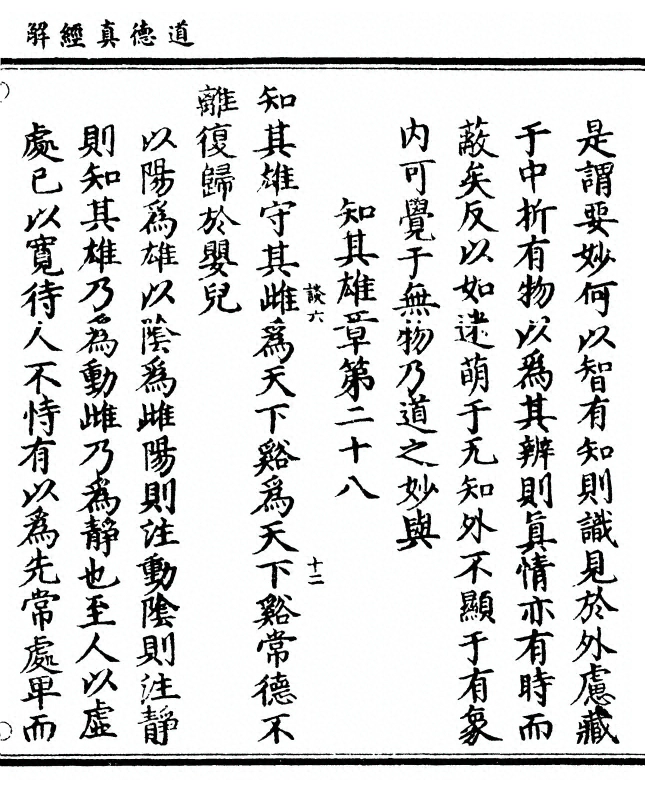 道德真經解
是謂要妙何以智有知則識見於外慮藏
于中折有物以為其辨則真情亦有時而
蔽矣反以如逮萌于无知外不顯于有象
内可覺于無物乃道之妙與
知其雄章第二十八
知其雄守其雌為天下谿為天下谿常德不
談六
十二
離復歸於嬰兒
以陽為雄以陰為雌陽則注動陰則注靜
則知其雄乃為動雌乃為靜也至人以虛
處己以寬待人不恃有以為先常處卑而